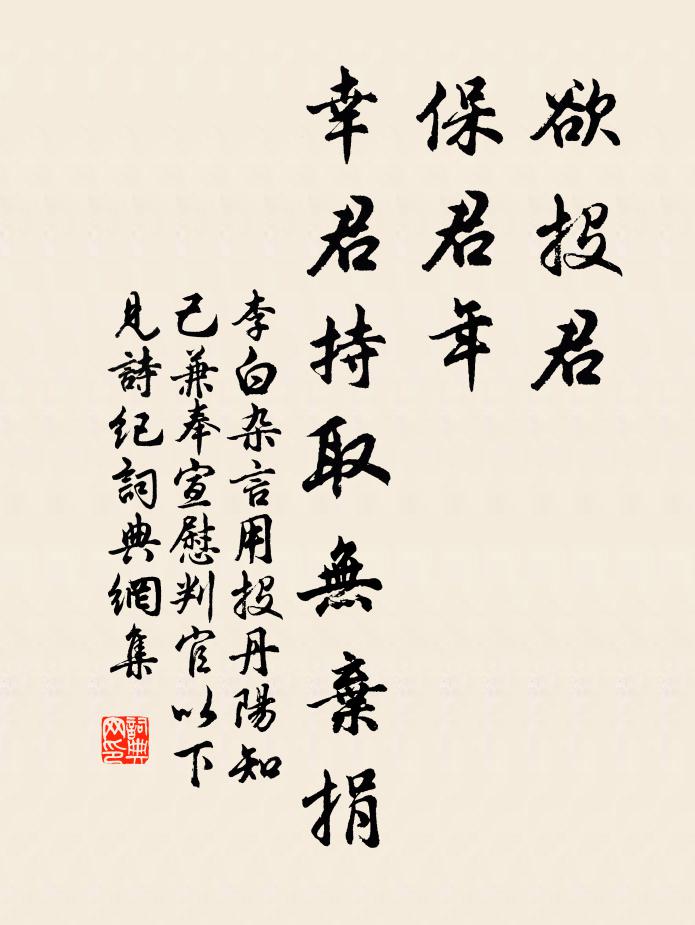 欲投君
保君年
幸君持取無棄捐
李白杂言用投丹陽知
己兼奉宣慰判官以下
見詩紀詞典網集
詞典
网印